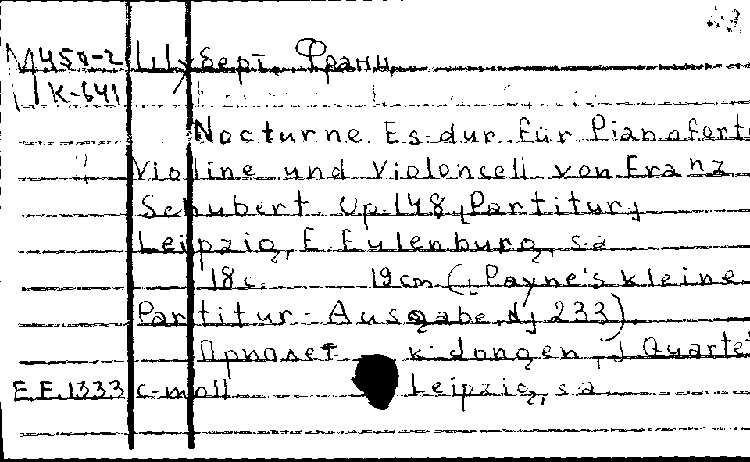 М450-2 Шуберт, Франц
К-641
Nocturne Es-dur für Pianoforte
Violine und Violoncell von Franz
Schubert Op.148 [Partitur]
Leipzig, E. Eulenburg, s.a.
18 с. 19 cm (Payne's kleine
Partitur-Ausgabe, № 233)
Приплет к: Quartet
E.E.1333 c-moll Leipzig, s.a.